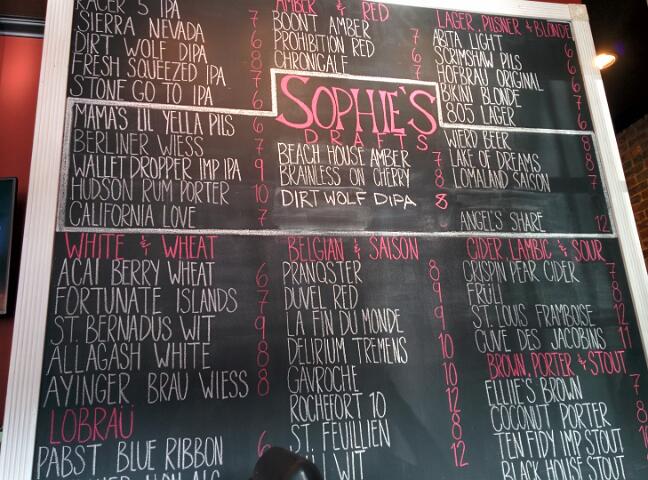 RACER 5 IPA 7
SIERRA NEVADA 6
DIRT WOLF DIPA 8
FRESH SQUEEZED IPA 7
STONE GO TO IPA 6
AMBER & RED
BOONT AMBER 7
PROHIBITION RED 6
CHRONIC ALE 7
LAGER, PILSNER & BLONDE
ABITA LIGHT 6
SCRIMSHAW PILS 6
HOFBRAU ORIGINAL 6
BIKINI BLONDE 7
805 LAGER 6
SOPHIE'S
DRAFTS
MAMA'S LIL YELLA PILS 6
BERLINER WIESS 7
WALLET DROPPER IMP IPA 9
HUDSON RUM PORTER 10
CALIFORNIA LOVE 7
BEACH HOUSE AMBER 7
BRAINLESS ON CHERRY 8
DIRT WOLF DIPA 8
WIERD BEER 8
LAKE OF DREAMS 8
LOMALAND SAISON 7
ANGEL'S SHARE 12
WHITE & WHEAT
ACAI BERRY WHEAT 6
FORTUNATE ISLANDS 7
ST. BERNADUS WIT 9
ALLAGASH WHITE 8
AYINGER BRAU WIESS 8
LOBRAÜ
PABST BLUE RIBBON 6
BELGIAN & SAISON
PRANQSTER 8
DUVEL RED 9
LA FIN DU MONDE 9
DELIRIUM TREMENS 10
GAVROCHE 10
ROCHEFORT 10 12
ST. FEUILLIEN 8
WIT 12
CIDER, LAMBIC & SOUR
CRISPIN PEAR CIDER 7
FRÜLI 8
ST. LOUIS FRAMBOISE 12
CUVE DES JACOBINS 11
BROWN, PORTER & STOUT
ELLIE'S BROWN 7
COCONUT PORTER 8
TEN FIDY IMP STOUT
BLACK HOUSE STOUT